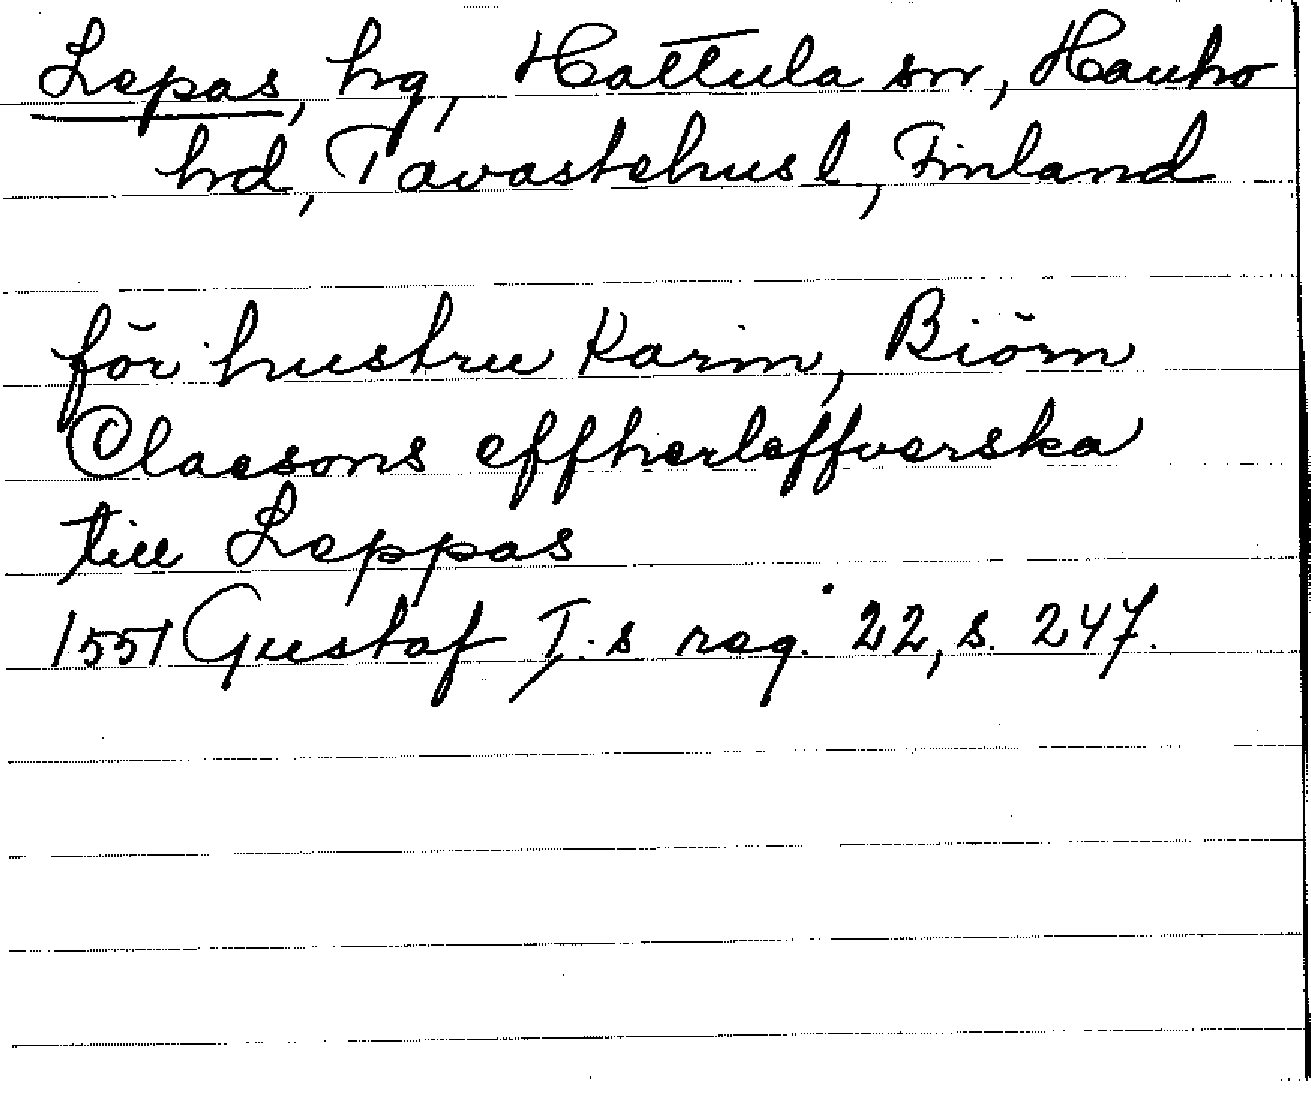 Lepas, hg, Hattula sn, Hauho
hd, Tavastehus l, Finland
för hustru Karin, Biörn
Claesons effherleffverska
till Leppas
1551 Gustaf I:s reg. 22, s. 247.